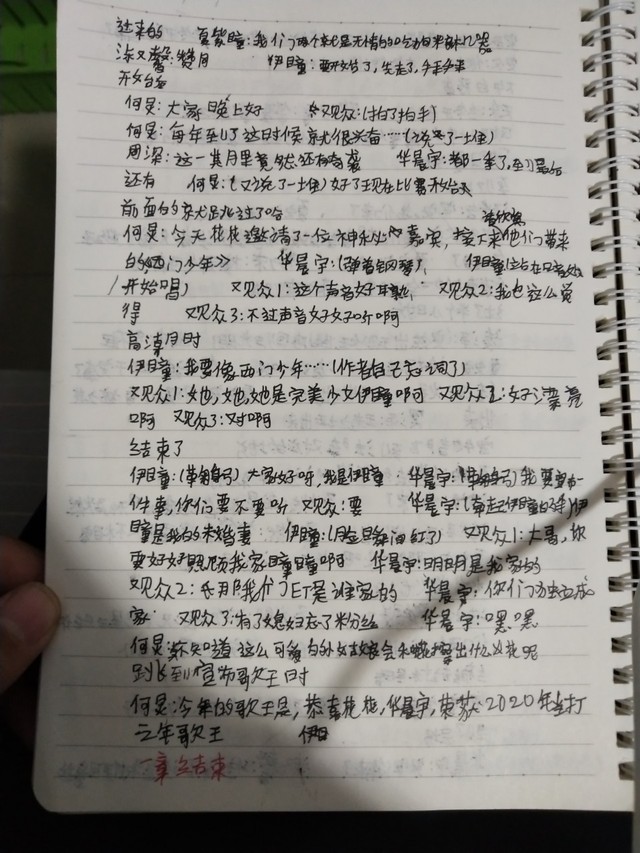 过来的 夏紫瞳:我们两个就是无情的吃柚子机器
涂又馨:赞同 伊瞳:要开始了,先走了,
开始后台
何炅:大家晚上好 观众:(拍了拍手)
何炅:每年到了这时候就很兴奋……(说了一堆)
周深:这一其月里竟然还有奇袭 华晨宇:都一季了,到最后
还有 何炅:(又说了一堆)好了现在比赛开始
前面的就跳过了哈
何炅:今天花花邀请了一位神秘内嘉宾,接下来他们带来
的《西门少年》 华晨宇:(弹着钢琴), 伊瞳:(站在
开始唱) 观众1:这个声音好耳熟, 观众2:我也这么觉
得 观众3:不过声音好好听啊
高潮时
伊瞳:我要像西门少年……(作者自己忘词了)
观众1:她,她,她是完美少女伊瞳啊 观众2:好漂亮
啊 观众3:对啊
结束了
伊瞳:(鞠躬)大家好呀,我是伊瞳 华晨宇:(鞠躬)我要宣布一
件事,你们要不要听 观众:要 华晨宇:(牵起伊瞳的手)伊
瞳是我的未婚妻 伊瞳:(脸瞬间红了) 观众1:大哥,你
要好好照顾我家瞳瞳啊 华晨宇:明明是我家的
观众2:我们ET是谁家的 华晨宇:你们独立成
家 观众3:有了媳妇忘了粉丝 华晨宇:嘿嘿
何炅:不知道这么可爱的外女娘会和擦出什么火花呢
跳到宣布歌王时
何炅:今年的歌王是,恭喜花花,华晨宇,荣获2020年当打
之年歌王 伊
一章结束